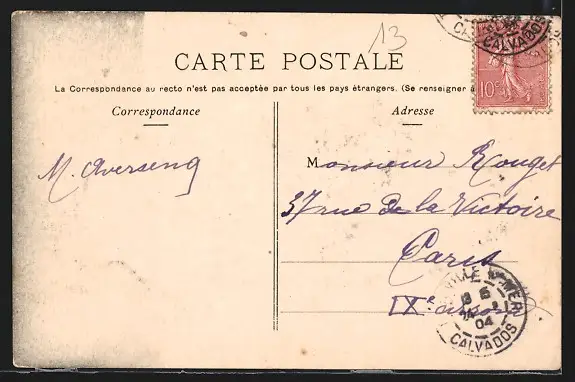 13
CARTE POSTALE
La Correspondance au recto n'est pas acceptée par tous les pays étrangers. (Se renseigner à
Correspondance
Adresse
CALVADOS
10c
M. Averseng
Monsieur Rouget
37 rue de la Victoire
Paris
IXe
VILLE MER
04
CALVADOS